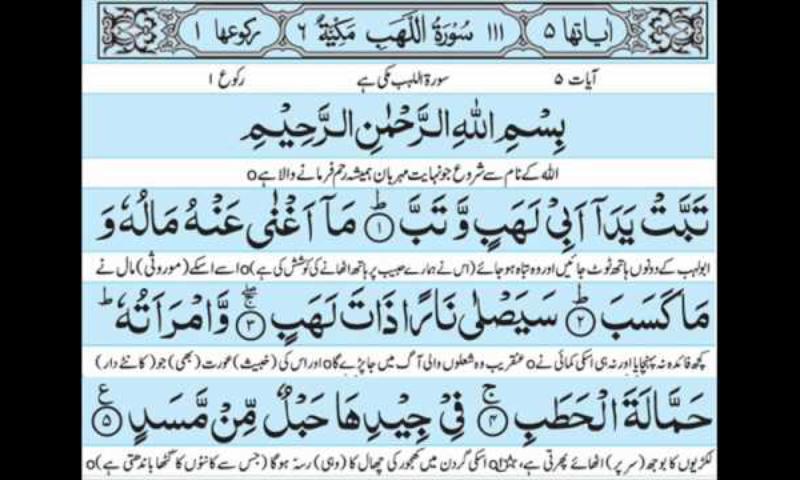 اٰیاتھا ۵ ۱۱۱ سُوْرَۃُ اللَّھَبِ مَکِّیَّۃٌ ۶ رکوعھا ۱
آیات ۵ سورۃ اللہب مکی ہے رکوع ۱
بِسْمِ اللّٰهِ الرَّحْمٰنِ الرَّحِیْمِ
اللہ کے نام سے شروع جو نہایت مہربان ہمیشہ رحم فرمانے والا ہے o
تَبَّتْ یَدَاۤ اَبِیْ لَهَبٍ وَّ تَبَّ ؕ﴿۱﴾ مَاۤ اَغْنٰی عَنْهُ مَالُهٗ وَ
ابولہب کے دونوں ہاتھ ٹوٹ جائیں اور وہ تباہ ہو جائے (اس نے ہمارے حبیب پر ہاتھ اٹھانے کی کوشش کی ہے) o اسے اسکے (موروثی) مال نے
مَا کَسَبَ ؕ﴿۲﴾ سَیَصْلٰی نَارًا ذَاتَ لَهَبٍ ۚۖ﴿۳﴾ وَّ امْرَاَتُهٗ ؕ
کچھ فائدہ نہ پہنچایا اور نہ ہی اسکی کمائی نے o عنقریب وہ شعلوں والی آگ میں جا پڑے گا o اور اس کی (خبیث) عورت (بھی) جو (کانٹے دار)
حَمَّالَةَ الْحَطَبِ ۚ﴿۴﴾ فِیْ جِیْدِهَا حَبْلٌ مِّنْ مَّسَدٍ ﴿۵﴾ ع
لکڑیوں کا بوجھ (سر پر) اٹھائے پھرتی ہے، o اسکی گردن میں کھجور کی چھال کا (وہی) رسہ ہوگا (جس سے کانٹوں کا گٹھا باندھتی ہے) o